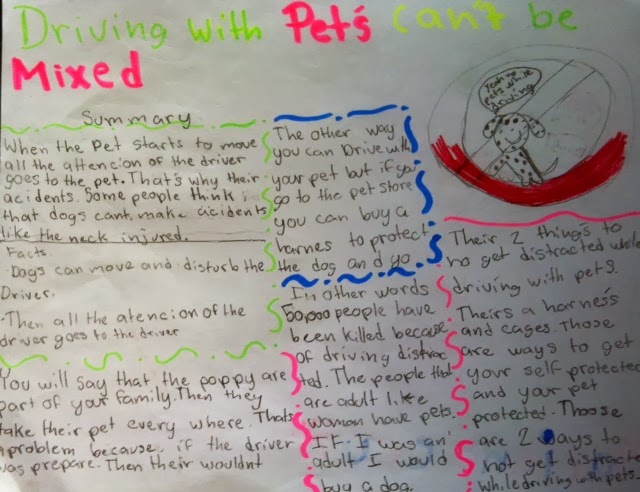 Driving with Pet's can't be
Mixed
Summary
When the pet starts to move
all the attencion of the driver
goes to the pet. That's why their
acidents. Some people think
that dogs cant make acidents
like the neck injured.
Facts.
·Dogs can move and disturb the
Driver.
·Then all the atencion of the
driver goes to the driver
You will say that the poppy are
part of your family. Then they
take their pet every where. Thats
a problem because, if the driver
was prepare. Then their wouldnt
The other way
you can Drive with
your pet but if you
go to the pet store
you can buy a
harnes to protect
the dog and go
In other words
50,000 people have
been killed because
of driving distrac
ted. The people that
are adult like
woman have pets.
If I was an
adult I would
buy a dog.
Yeah no
pets while
driving
Their 2 things to
no get distracted while
driving with pets.
Theirs a harness
and cages. Those
are ways to get
your self protected
and your pet
protected. Thoose
are 2 ways to
not get distracted
while driving with pets.